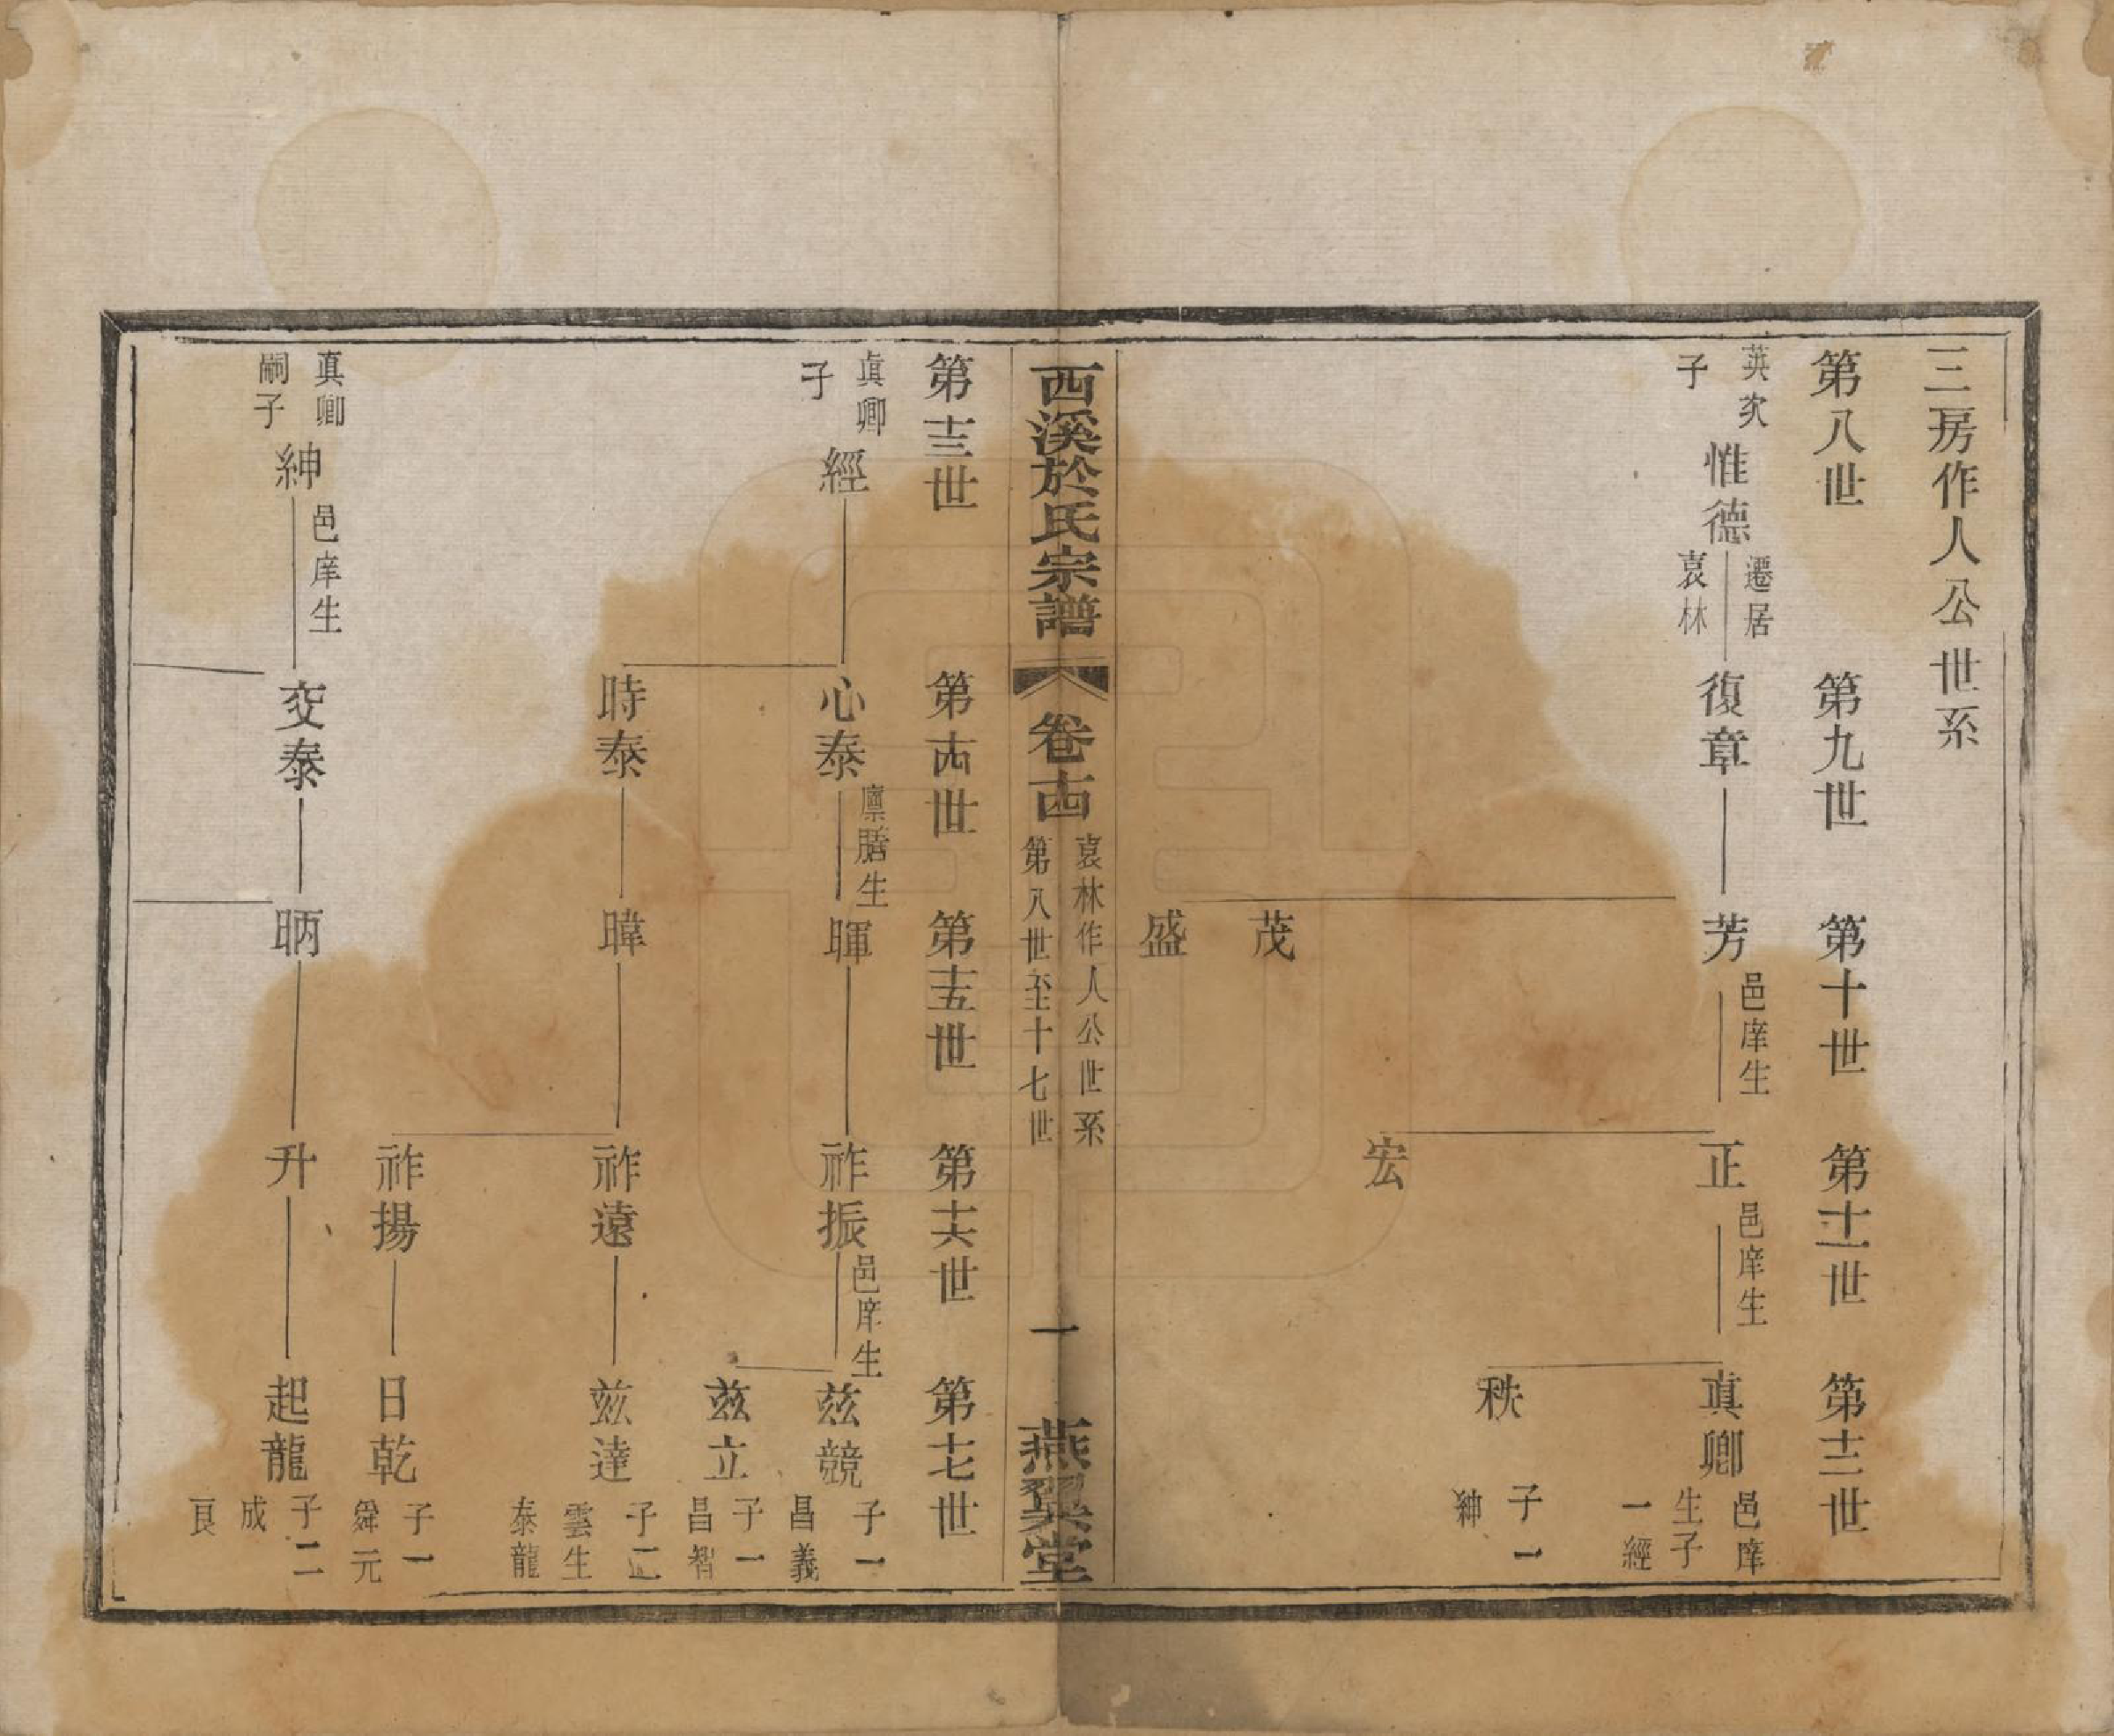 三房作人公世系
第八世
第九世
第十世
第十一世
第十二世
英次子
惟德
遷居袁林
復章
芳
邑庠生
正
邑庠生
真卿
邑庠生子一經
秩
子一紳
宏
茂
盛
西溪於氏宗譜
卷十四
袁林作人公世系
第八世至十七世
一
燕翼堂
第十三世
第十四世
第十五世
第十六世
第十七世
真卿子
經
心泰
廩膳生
暉
祚振
邑庠生
茲競
子一昌義
茲立
子一昌智
時泰
暐
祚遠
茲達
子二雲生泰龍
祚揚
日乾
子一舜元
真卿嗣子
紳
邑庠生
交泰
昞
升
起龍
子二成良